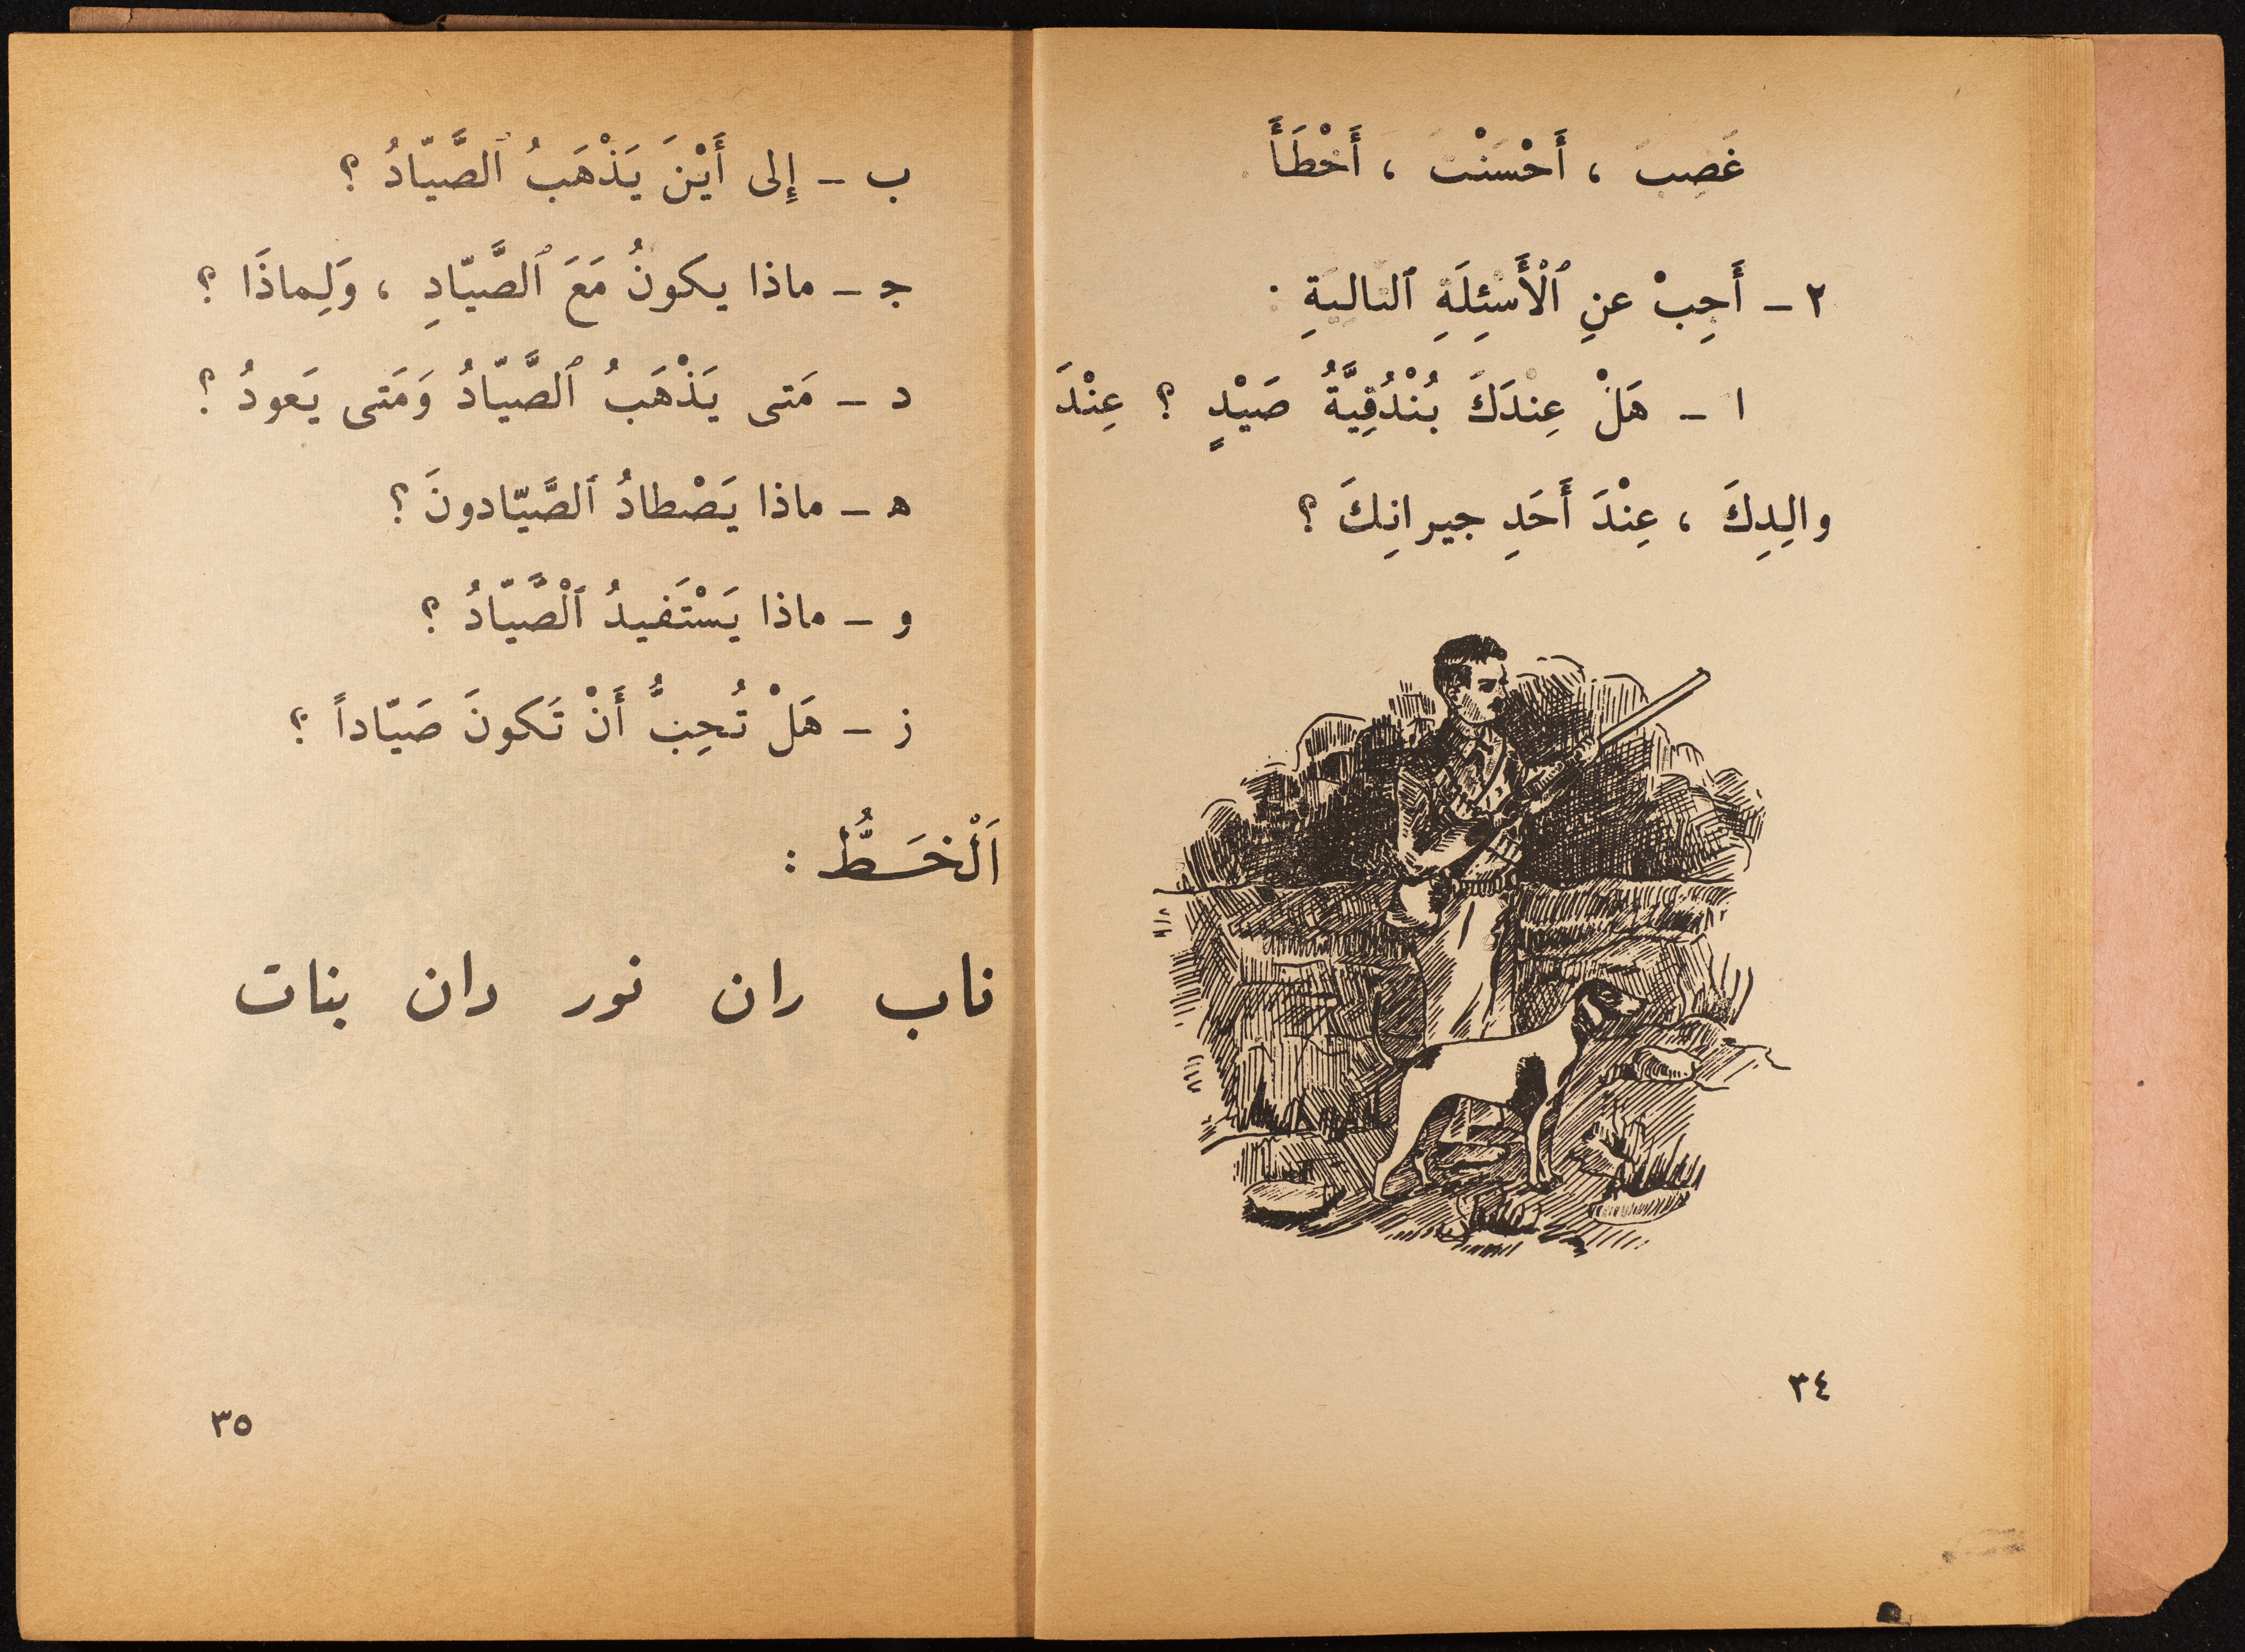 غَضِبَ ، أَحْسَنْتَ ، أَخْطَأَ .
٢ – أَجِبْ عنِ ٱلْأَسْئِلَةِ ٱلتاليَةِ :
ا – هَلْ عِنْدَكَ بُنْدُقِيَّةُ صَيْدٍ ؟ عِنْدَ
والِدِكَ ، عِنْدَ أَحَدِ جيرانِكَ ؟
٣٤
ب – إِلى أَيْنَ يَذْهَبُ ٱلصَّيّادُ ؟
جـ – ماذا يكونُ مَعَ ٱلصَّيّادِ ، وَلِماذَا ؟
د – مَتى يَذْهَبُ ٱلصَّيّادُ وَمَتى يَعودُ ؟
هـ – ماذا يَصْطادُ ٱلصَّيّادونَ ؟
و – ماذا يَسْتَفيدُ ٱلْصَّيّادُ ؟
ز – هَلْ تُحِبُّ أَنْ تَكونَ صَيّاداً ؟
اَلْخَـطُّ :
ناب ران نور دان بنات
٣٥